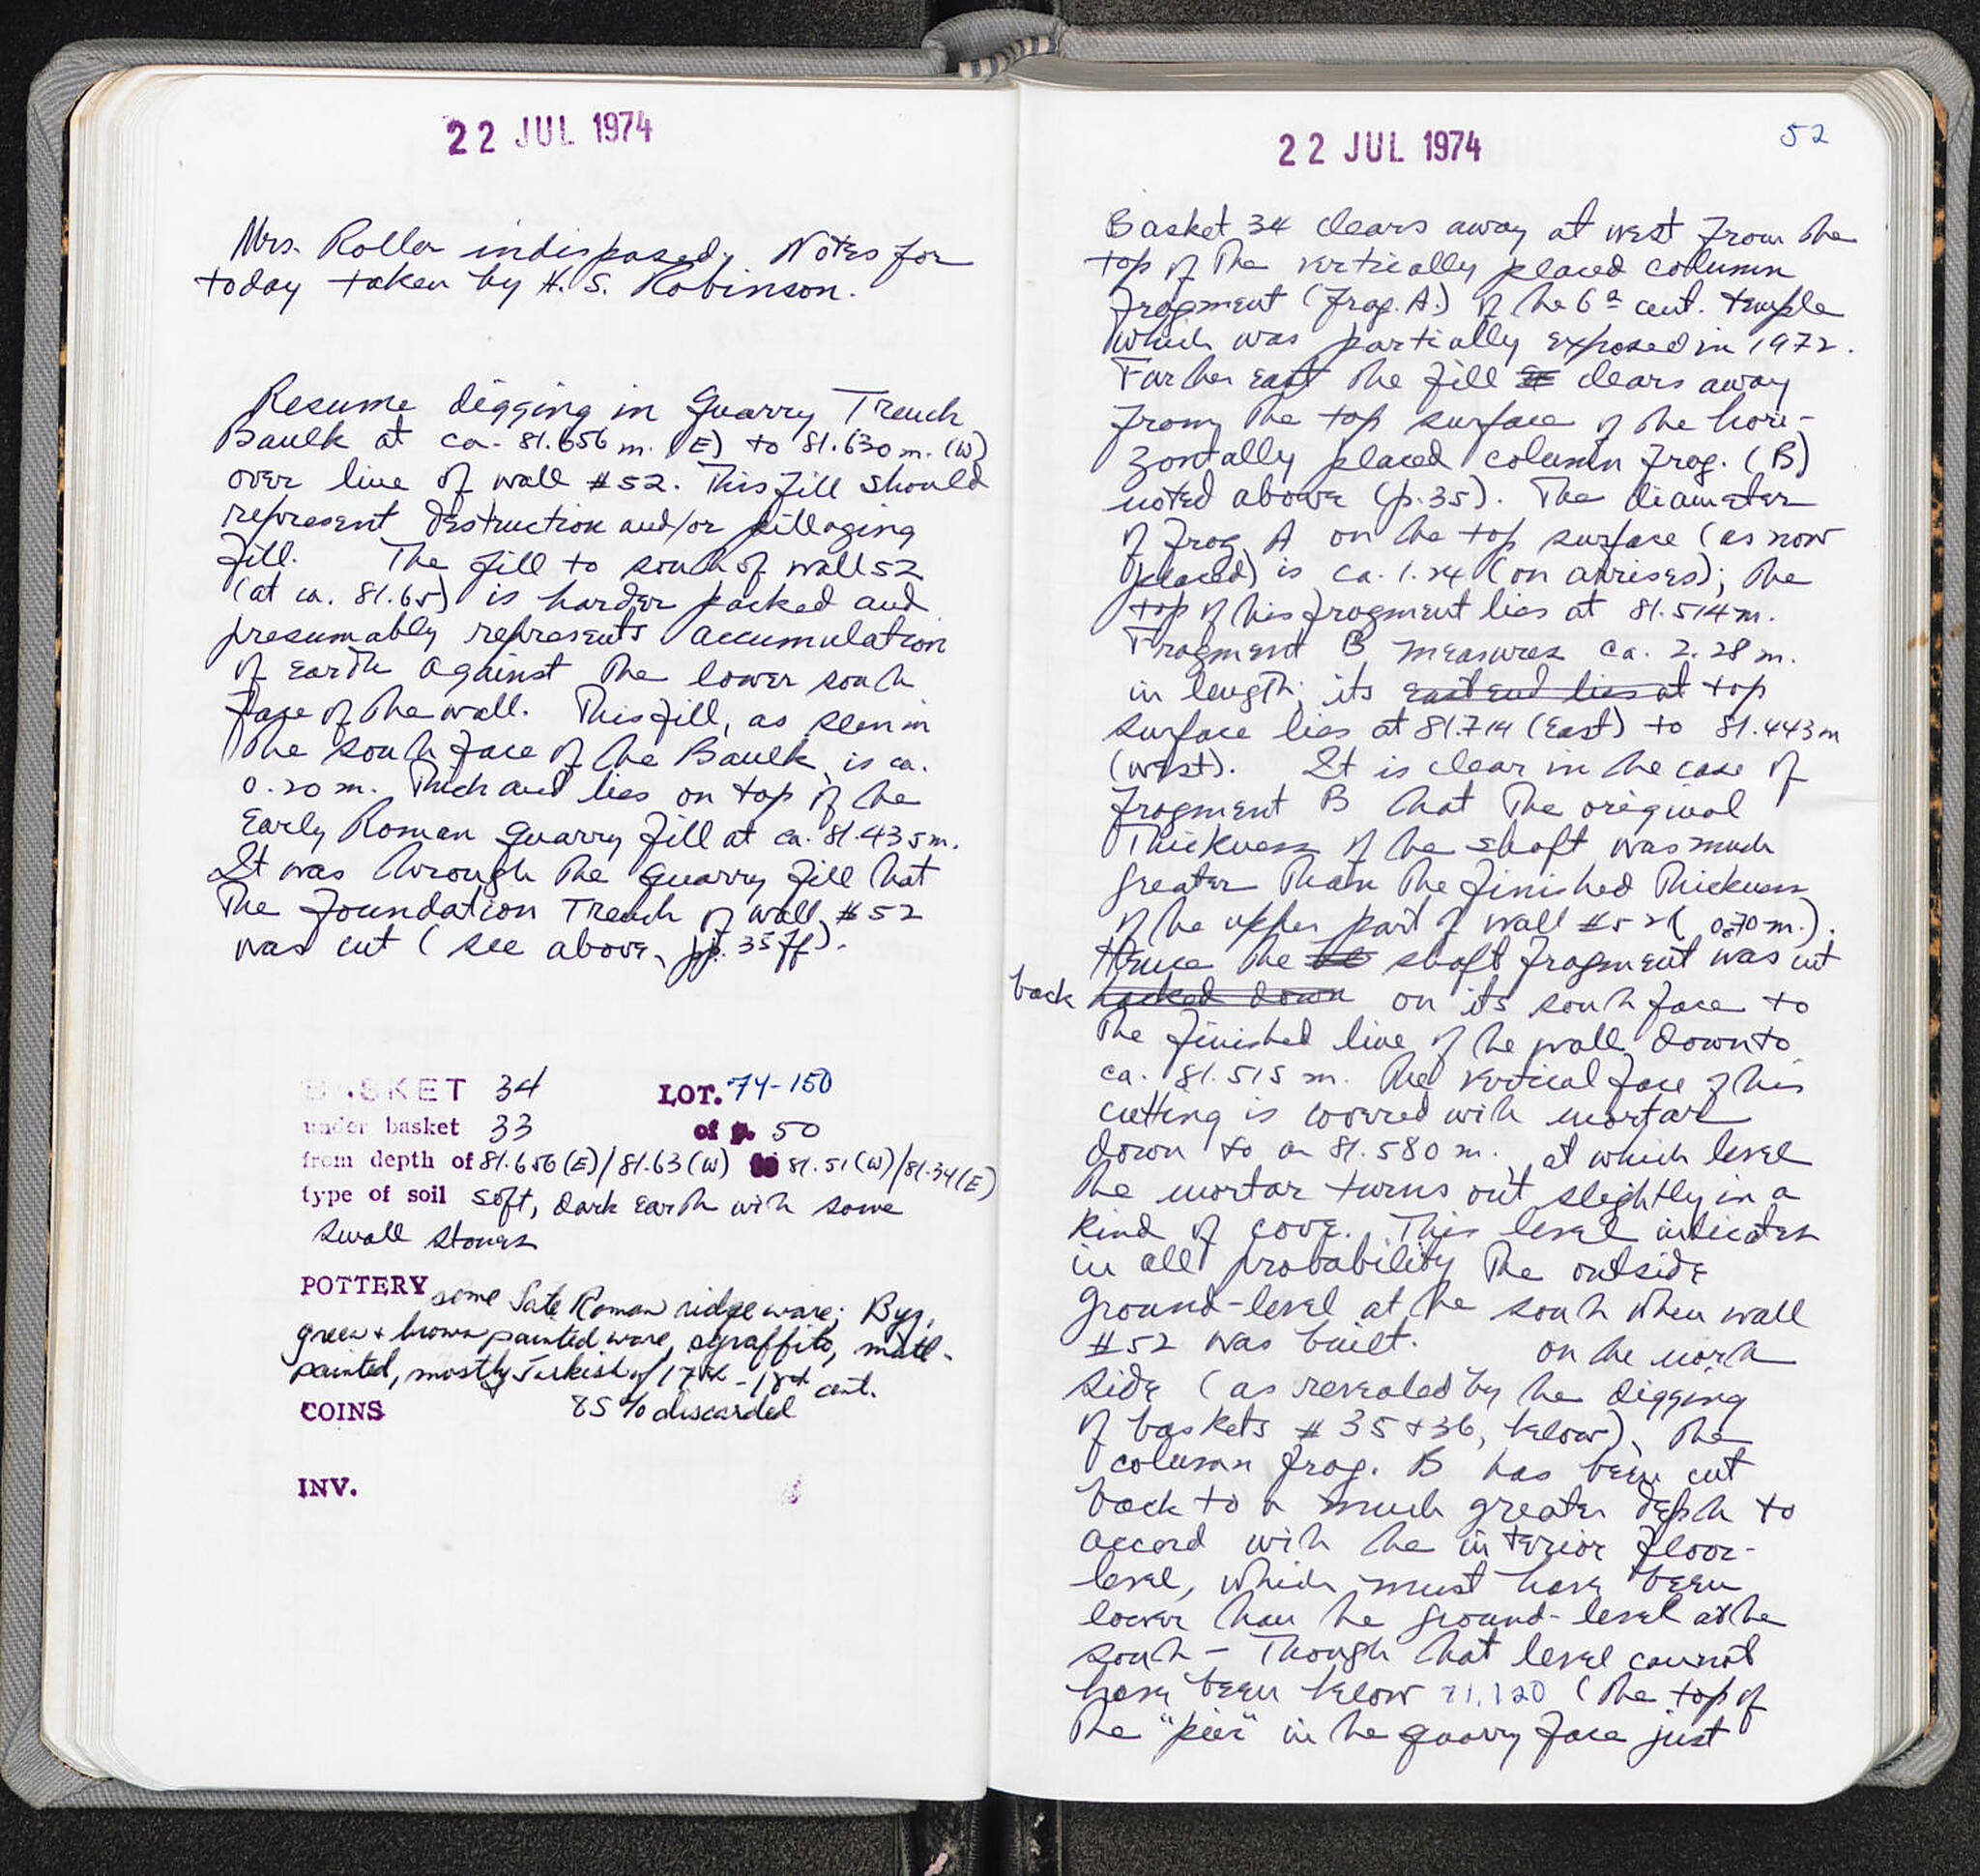 22 JUL 1974
Mrs. Roller indisposed. Notes for
today taken by H. S. Robinson.
Resume digging in Quarry Trench
Baulk at ca. 81.656 m. (E) to 81.630 m. (W)
over line of wall #52. This fill should
represent destruction and/or pillaging
fill. The fill to south of wall 52
(at ca. 81.65) is harder packed and
presumably represents accumulation
of earth against the lower south
face of the wall. This fill, as seen in
the south face of the Baulk, is ca.
0.20 m. thick and lies on top of the
Early Roman quarry fill at ca. 81.435 m.
It was through the quarry fill that
the foundation trench of wall #52
was cut (see above, pp. 35 ff).
BASKET 34 LOT. 74-150
under basket 33 of p. 50
from depth of 81.656 (E)/81.63 (W) to 81.51 (W)/81.34 (E)
type of soil soft, dark earth with some
small stones
POTTERY some Late Roman ridge ware; Byz.
green + brown painted ware, sgraffito, matt-
painted, mostly Turkish of 17th - 18th cent.
COINS 85% discarded
INV.
22 JUL 1974
52
Basket 34 clears away at west from the
top of the vertically placed column
fragment (frag. A.) of the 6th cent. temple
which was partially exposed in 1972.
Farther east the fill clears away
from the top surface of the hori-
zontally placed column frag. (B)
noted above (p. 35). The diameter
of frag. A on the top surface (as now
placed) is ca. 1.24 (on arrises); the
top of this fragment lies at 81.514 m.
Fragment B measures ca. 2.28 m.
in length; its east end lies at top
surface lies at 81.714 (East) to 81.443 m
(west). It is clear in the case of
fragment B that the original
thickness of the shaft was much
greater than the finished thickness
of the upper part of wall #52 (0.70 m.).
Hence the shaft fragment was cut
back hacked down on its south face to
the finished line of the wall down to
ca. 81.515 m. The vertical face of this
cutting is covered with mortar
down to ca 81.580 m., at which level
the mortar turns out slightly in a
kind of cove. This level indicates
in all probability the outside
ground-level at the south when wall
#52 was built. On the north
side (as revealed by the digging
of baskets #35 + 36, below), the
column frag. B has been cut
back to a much greater depth to
accord with the interior floor-
level, which must have been
lower than the ground-level at the
south – though that level cannot
have been below 81.120 (the top of
the "pier" in the quarry face just